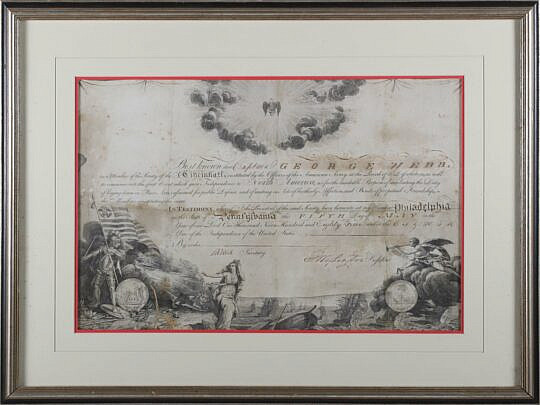 Be it known that Captain GEORGE WEBB
is a Member of the Society of the Cincinnati, instituted by the Officers of the American Army, at the Period of its Dissolution, as well
to commemorate the great Event which gave Independence to North America, as for the laudable Purpose of inculcating the Duty of
laying down in Peace Arms assumed for public Defence, and of uniting in Acts of brotherly Affection, and Bonds of perpetual Friendship,
the Members constituting the same.
IN TESTIMONY whereof I, the President of the said Society, have hereunto set my Hand at Philadelphia
in the State of Pennsylvania this FIFTH Day of May in the
Year of our Lord One Thousand Seven Hundred and Eighty Five and in the
Year of the Independence of the United States.
By order,
Secretary.
President.